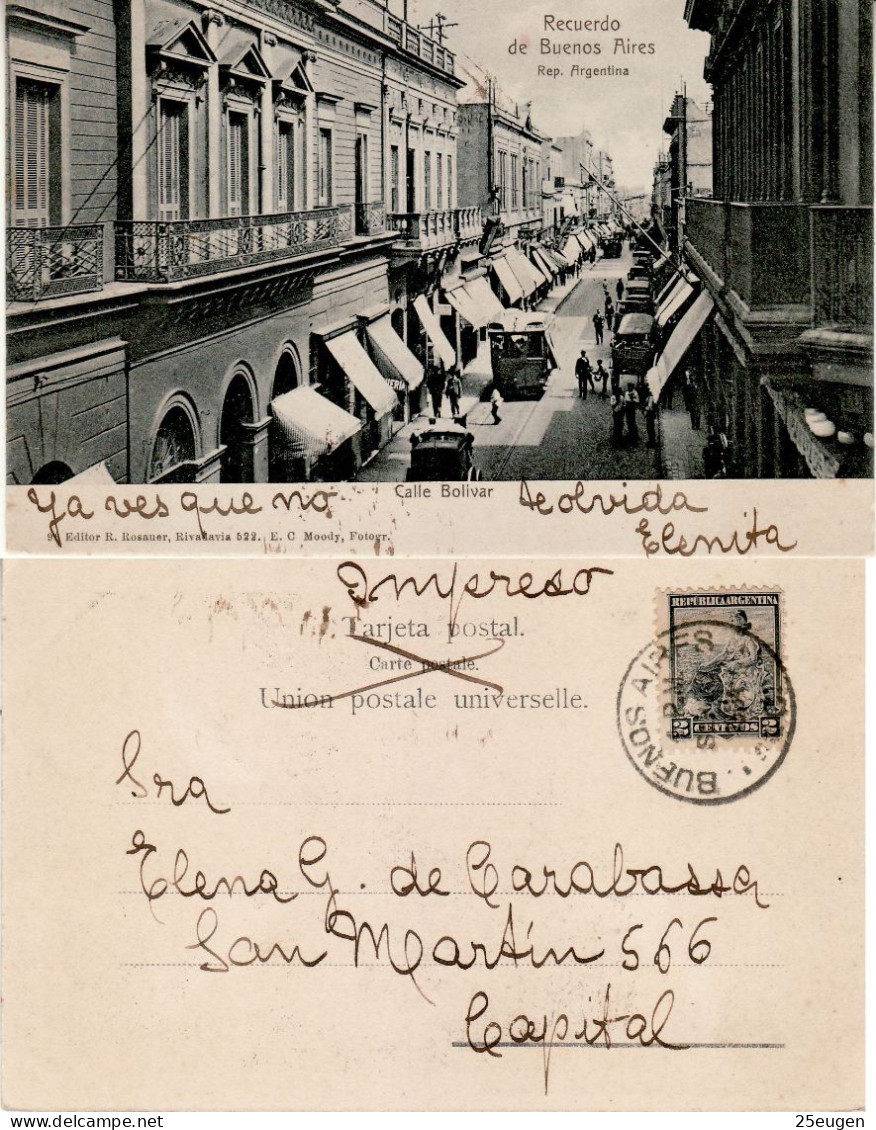 Recuerdo
de Buenos Aires
Rep. Argentina
Calle Bolivar
Ya ves que no te olvida
Elenita
Editor R. Rosauer, Rivadavia 522. E. C Moody, Fotogr.
Impreso
Tarjeta postal.
Carte postale.
Union postale universelle.
REPUBLICA ARGENTINA
2 CENTAVOS 2
BUENOS AIRES
Sra
Elena G. de Carabassa
San Martín 566
Capital
25eugen